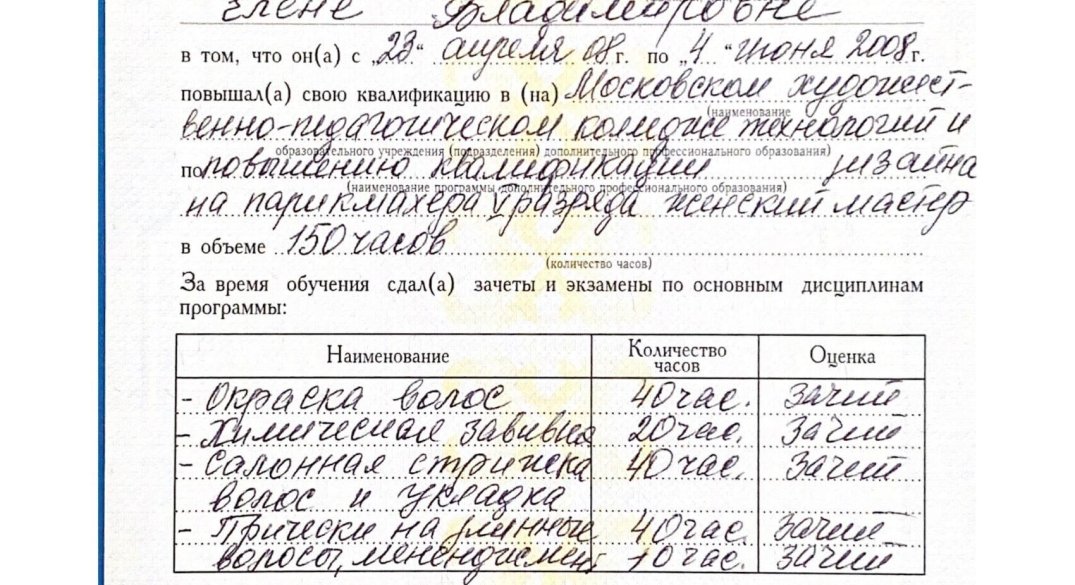 Елене Владимировне
в том, что он(а) с „23“ апреля 08 г. по „4“ июня 2008 г.
повышал(а) свою квалификацию в (на) Московском художест-
(наименование
венно-педагогическом колледже технологий и
образовательного учреждения (подразделения) дополнительного профессионального образования)
по повышению квалификации дизайна
(наименование программы дополнительного профессионального образования)
на парикмахера V разряда женский мастер
в объеме 150 часов
(количество часов)
За время обучения сдал(а) зачеты и экзамены по основным дисциплинам
программы:
Наименование Количество часов Оценка
- Окраска волос 40 час. зачет
- Химическая завивка 20 час. зачет
- Салонная стрижка 40 час. зачет
волос и укладка
- Прически на длинные 40 час. зачет
волосы, менеджмент 10 час. зачет